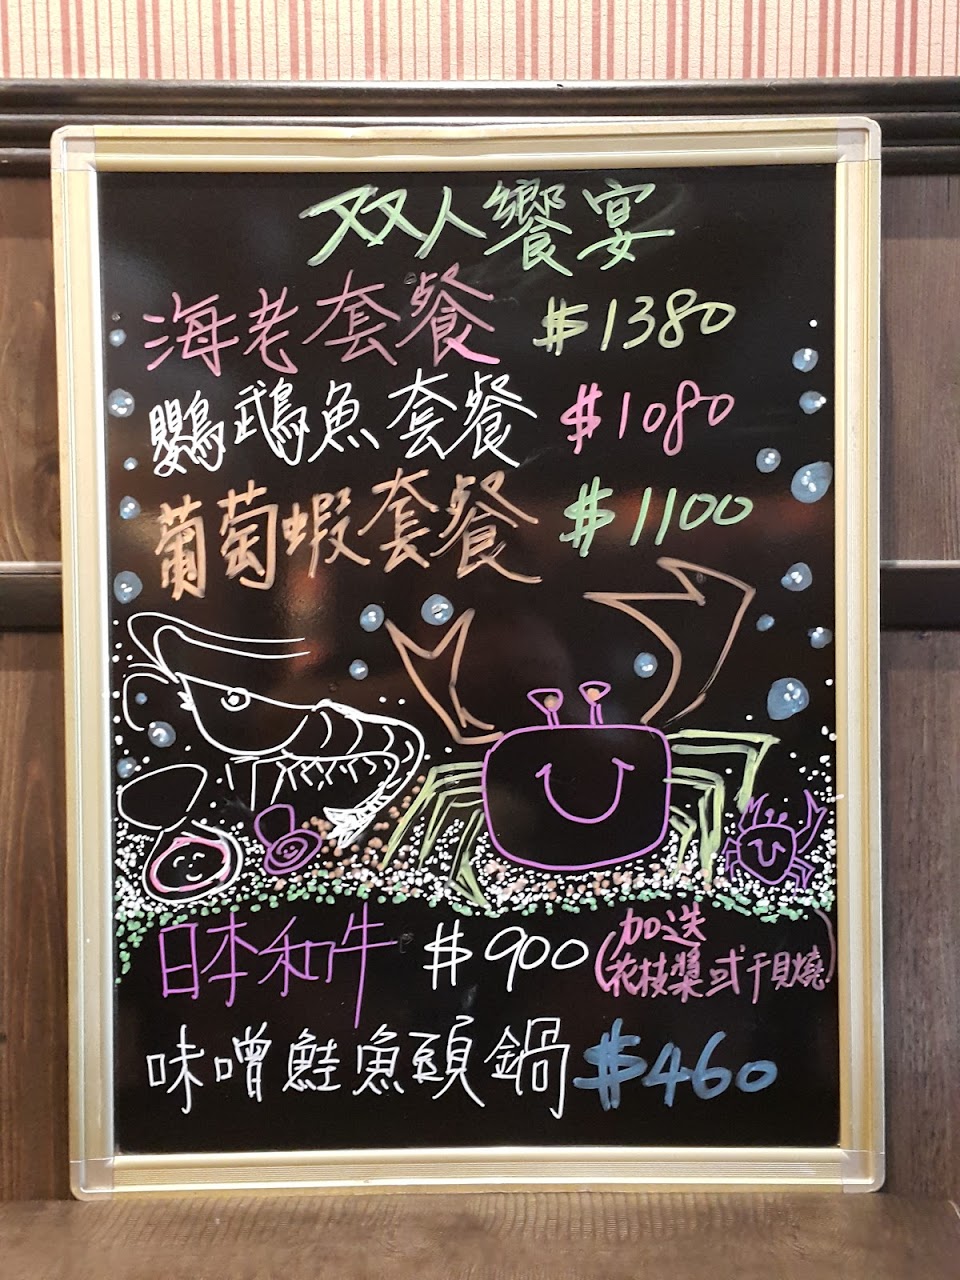 双人饗宴
海老套餐 $1380
鸚鵡魚套餐 $1080
葡萄蝦套餐 $1100
日本和牛 $900 (加送
花枝漿或干貝燒)
味噌鮭魚頭鍋 $460